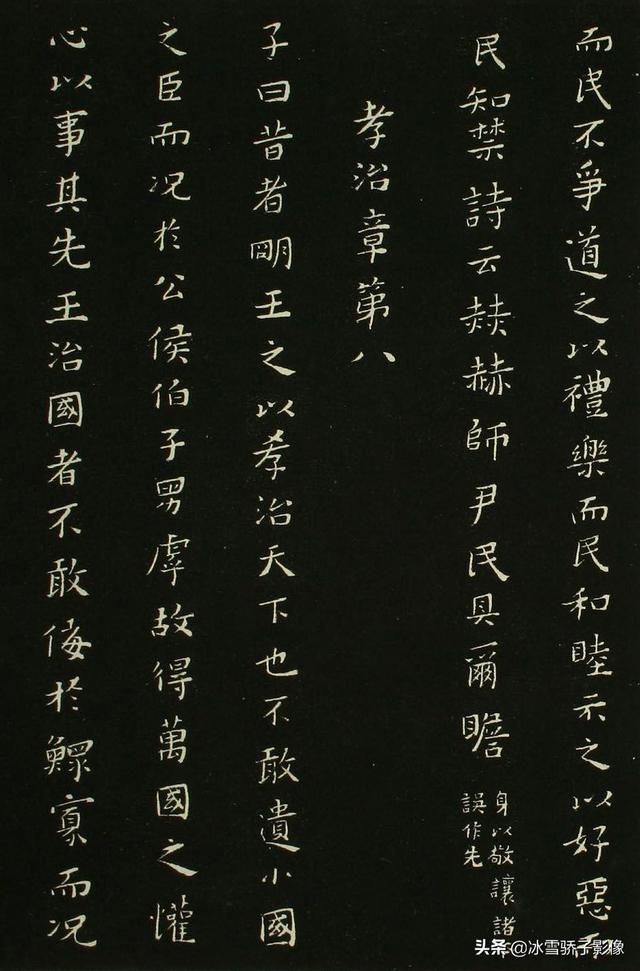 而民不爭道之以禮樂而民和睦示之以好惡而
民知禁詩云赫赫師尹民具爾瞻
身以敬讓諸
誤作先
孝治章第八
子曰昔者朙王之以孝治天下也不敢遺小國
之臣而况於公侯伯子男虖故得萬國之懽
心以事其先王治國者不敢侮於鰥寡而况
头条 @冰雪骄子影像